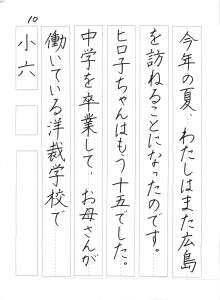 10
今年の夏…わたしはまた広島
を訪ねることになったのです。
ヒロ子ちゃんはもう十五でした。
中学を卒業して…お母さんが
働いている洋裁学校で
小六